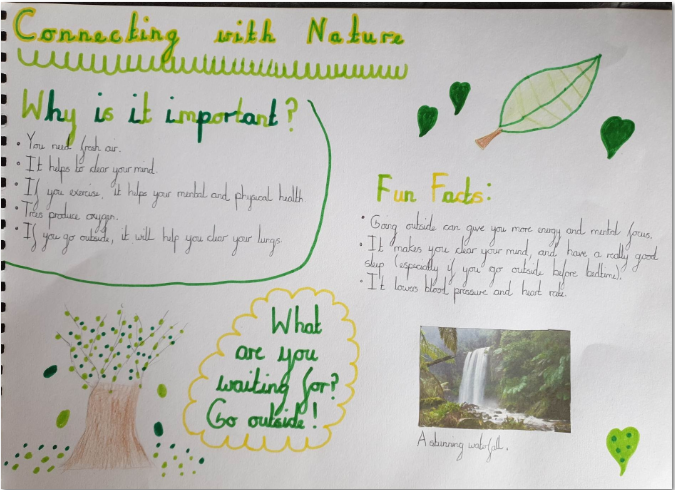 Connecting with Nature
Why is it important?
• You need fresh air.
• It helps to clear your mind.
• If you exercise, it helps your mental and physical health.
• Trees produce oxygen.
• If you go outside, it will help you clear your lungs.
Fun Facts:
• Going outside can give you more energy and mental focus.
• It makes you clear your mind, and have a really good
sleep (especially if you go outside before bedtime).
• It lowers blood pressure and heart rate.
What
are you
waiting for?
Go outside!
A stunning waterfall.